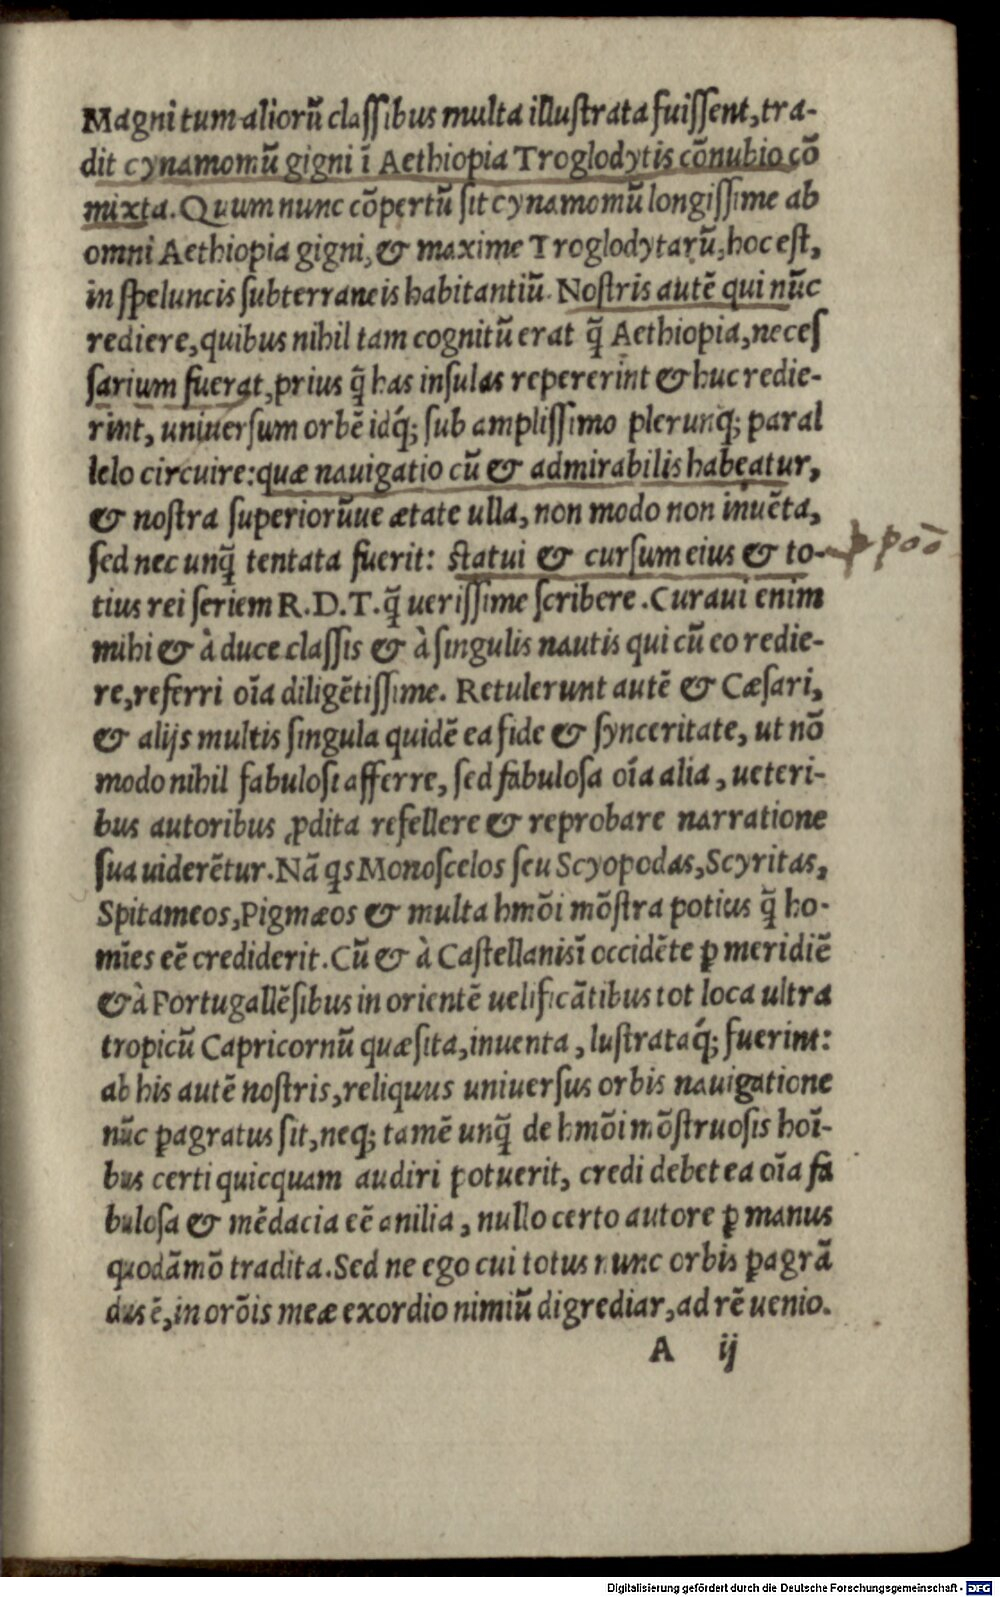 Magni tum aliorū classibus multa illustrata fuissent, tra-
dit cynamomū gigni ī Aethiopia Troglodytis cōnubio cō
mixta. Quum nunc cōpertū sit cynamomū longissime ab
omni Aethiopia gigni, & maxime Troglodytarū, hoc est,
in speluncis subterraneis habitantiū. Nostris autē qui nūc
rediere, quibus nihil tam cognitū erat q̄ Aethiopia, neces
sarium fuerat, prius q̄ has insulas repererint & huc redie-
rint, uniuersum orbē idq́; sub amplissimo plerunq; paral
lelo circuire: quæ nauigatio cū & admirabilis habeatur,
& nostra superiorūue ætate ulla, non modo non inuēta,
sed nec unq̄ tentata fuerit: statui & cursum eius & to-
ꝓpoō
tius rei seriem R.D.T. q̄ uerissime scribere. Curaui enim
mihi & à duce classis & à singulis nautis qui cū eo redie-
re, referri oīa diligētissime. Retulerunt autē & Cæsari,
& alijs multis singula quidē ea fide & synceritate, ut nō
modo nihil fabulosi afferre, sed fabulosa oīa alia, ueteri-
bus autoribus ꝓdita refellere & reprobare narratione
sua uiderētur. Nā qs Monoscelos seu Scyopodas, Scyritas,
Spitameos, Pigmæos & multa hmōi mōstra potius q̄ ho-
mīes eē crediderit. Cū & à Castellanis ī occidēte ꝑ meridiē
& à Portugallēsibus in orientē uelificātibus tot loca ultra
tropicū Capricornū quæsita, inuenta, lustrataq́; fuerint:
ab his autē nostris, reliquus uniuersus orbis nauigatione
nūc ꝑagratus sit, neq; tamē unq̄ de hmōi mōstruosis hoī-
bus certi quicquam audiri potuerit, credi debet ea oīa fa
bulosa & mēdacia eē anilia, nullo certo autore ꝑ manus
quodāmō tradita. Sed ne ego cui totus nunc orbis ꝑagrā
dus ē, in orōis meæ exordio nimiū digrediar, ad rē uenio.
A ij
Digitalisierung gefördert durch die Deutsche Forschungsgemeinschaft - DFG